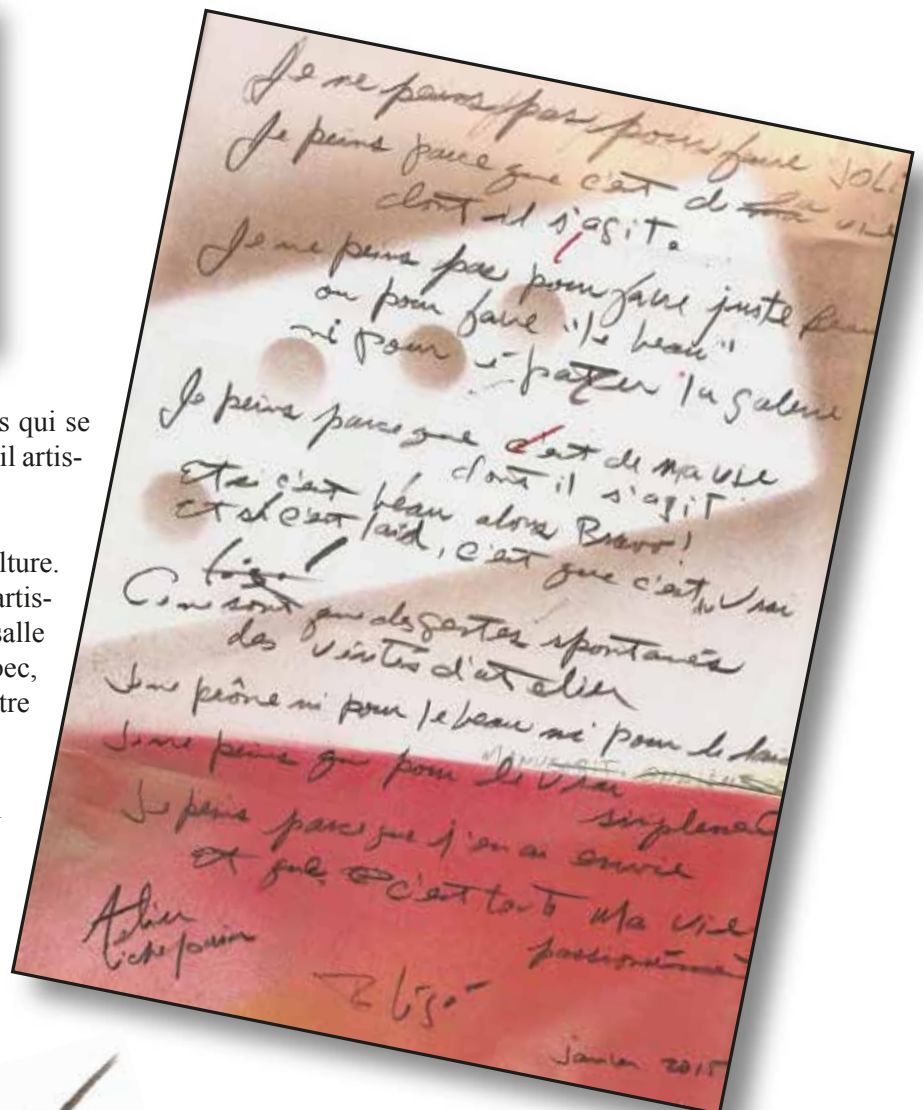 s qui se
il artis-
lture.
artis-
salle
bec,
tre
Je ne peins pas pour faire JOLI
Je peins parce que c'est de la vie
dont il s'agit.
Je ne peins pas pour faire juste beau
ou pour faire "le beau"
ni pour épater la galerie
Je peins parce que c'est de ma vie
dont il s'agit
Et si c'est beau alors Bravo!
Et si c'est laid, c'est que c'est vrai
Ce ne sont que des gestes spontanés
des d'atelier
Je ne prône ni pour le beau ni pour le laid
Je ne peins que pour le vrai
simplement
Je peins parce que j'en ai envie
Et que c'est toute Ma vie
passionnément
Atelier
janvier 2015